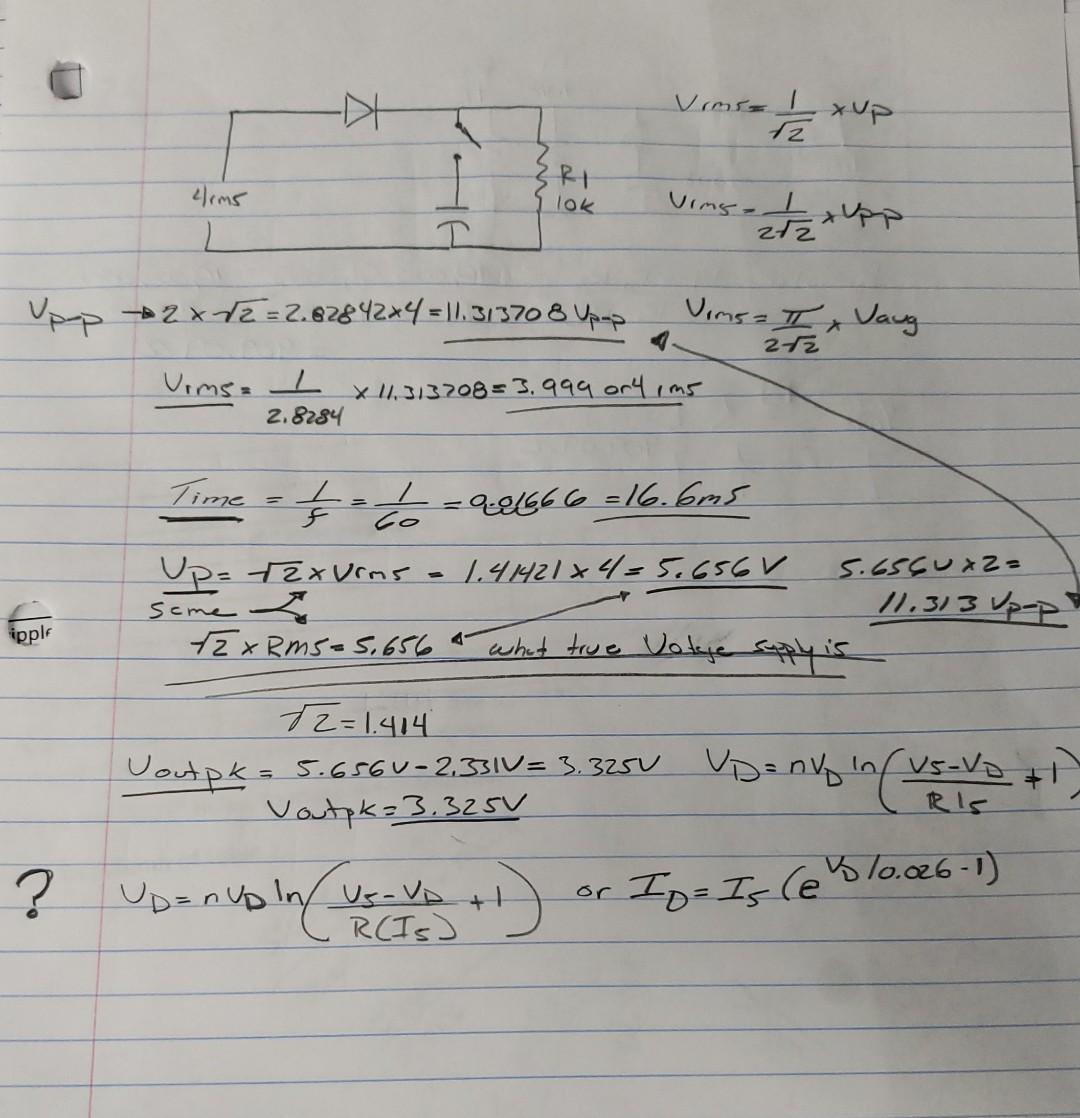 Vrms = 1/√2 × Vp
4rms
R1
10K
Vrms = 1/2√2 × Vp-p
Vp-p → 2 × √2 = 2.82842 × 4 = 11.313708 Vp-p
Vrms = π/2√2 × Vavg
Vrms = 1/2.8284 × 11.313708 = 3.999 or 4 rms
Time = 1/f = 1/60 = 0.01666 = 16.6ms
Vp = √2 × Vrms = 1.41421 × 4 = 5.656V
5.656V × 2 =
11.313 Vp-p
same
ipple
√2 × Rms = 5.656 what true Voltage supply is
√2 = 1.414
Voutpk = 5.656V - 2.331V = 3.325V
VD = nVD ln(VS-VD/RIS + 1)
Voutpk = 3.325V
? VD = nVD ln(VS-VD/R(IS) + 1) or ID = IS (e^VD/0.026 - 1)